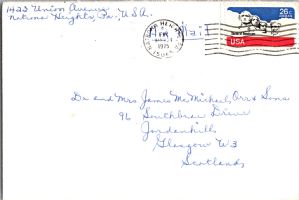 1423 Union Avenue
Natrona Heights, Pa. U.S.A.
Air Mail
PM
1975
26c
USA
Dr and Mrs James McMichael Orr & Sons
96 Southbrae Drive
Jordanhill
Glasgow W3
Scotland